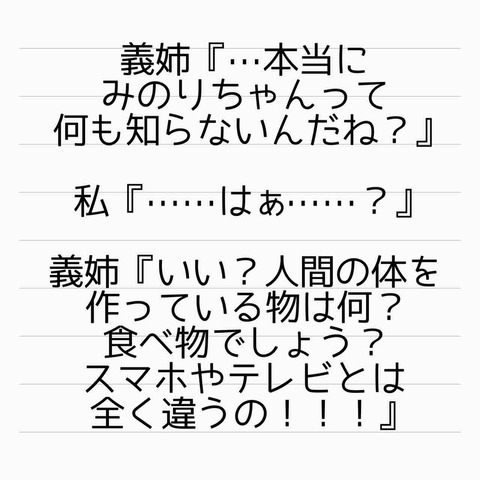 義姉『…本当に
みのりちゃんって
何も知らないんだね？』
私『……はぁ……？』
義姉『いい？人間の体を
作っている物は何？
食べ物でしょう？
スマホやテレビとは
全く違うの！！！』